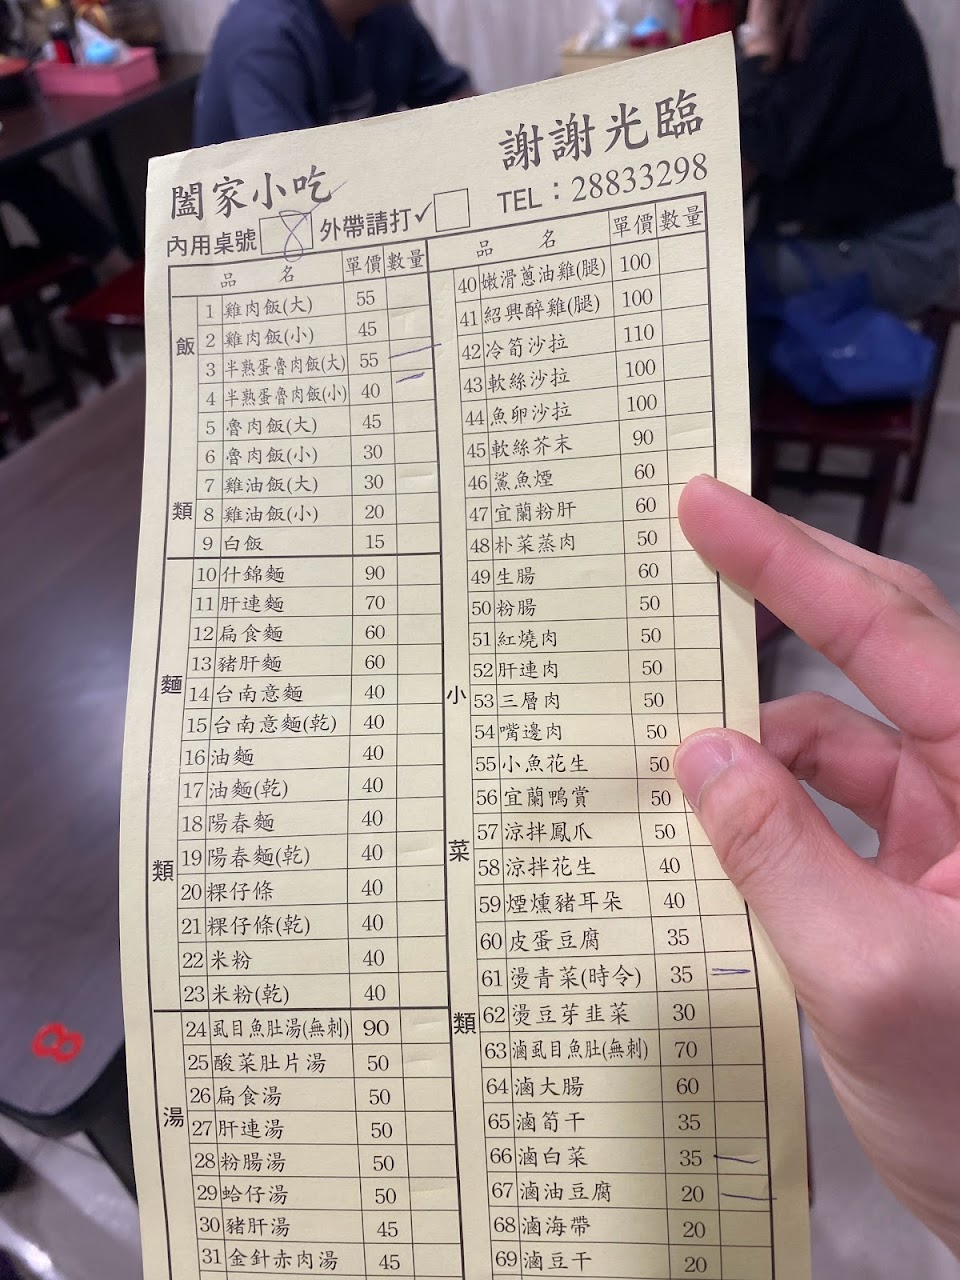 謝謝光臨
闔家小吃
TEL：28833298
內用桌號 8 外帶請打✓
品名 單價 數量
飯類
1 雞肉飯(大) 55
2 雞肉飯(小) 45
3 半熟蛋魯肉飯(大) 55 一
4 半熟蛋魯肉飯(小) 40 一
5 魯肉飯(大) 45
6 魯肉飯(小) 30
7 雞油飯(大) 30
8 雞油飯(小) 20
9 白飯 15
麵類
10 什錦麵 90
11 肝連麵 70
12 扁食麵 60
13 豬肝麵 60
14 台南意麵 40
15 台南意麵(乾) 40
16 油麵 40
17 油麵(乾) 40
18 陽春麵 40
19 陽春麵(乾) 40
20 粿仔條 40
21 粿仔條(乾) 40
22 米粉 40
23 米粉(乾) 40
湯
24 虱目魚肚湯(無刺) 90
25 酸菜肚片湯 50
26 扁食湯 50
27 肝連湯 50
28 粉腸湯 50
29 蛤仔湯 50
30 豬肝湯 45
31 金針赤肉湯 45
品名 單價 數量
小菜類
40 嫩滑蔥油雞(腿) 100
41 紹興醉雞(腿) 100
42 冷筍沙拉 110
43 軟絲沙拉 100
44 魚卵沙拉 100
45 軟絲芥末 90
46 鯊魚煙 60
47 宜蘭粉肝 60
48 朴菜蒸肉 50
49 生腸 60
50 粉腸 50
51 紅燒肉 50
52 肝連肉 50
53 三層肉 50
54 嘴邊肉 50
55 小魚花生 50
56 宜蘭鴨賞 50
57 涼拌鳳爪 50
58 涼拌花生 40
59 煙燻豬耳朵 40
60 皮蛋豆腐 35
61 燙青菜(時令) 35 一
62 燙豆芽韭菜 30
63 滷虱目魚肚(無刺) 70
64 滷大腸 60
65 滷筍干 35
66 滷白菜 35 一
67 滷油豆腐 20 一
68 滷海帶 20
69 滷豆干 20
8